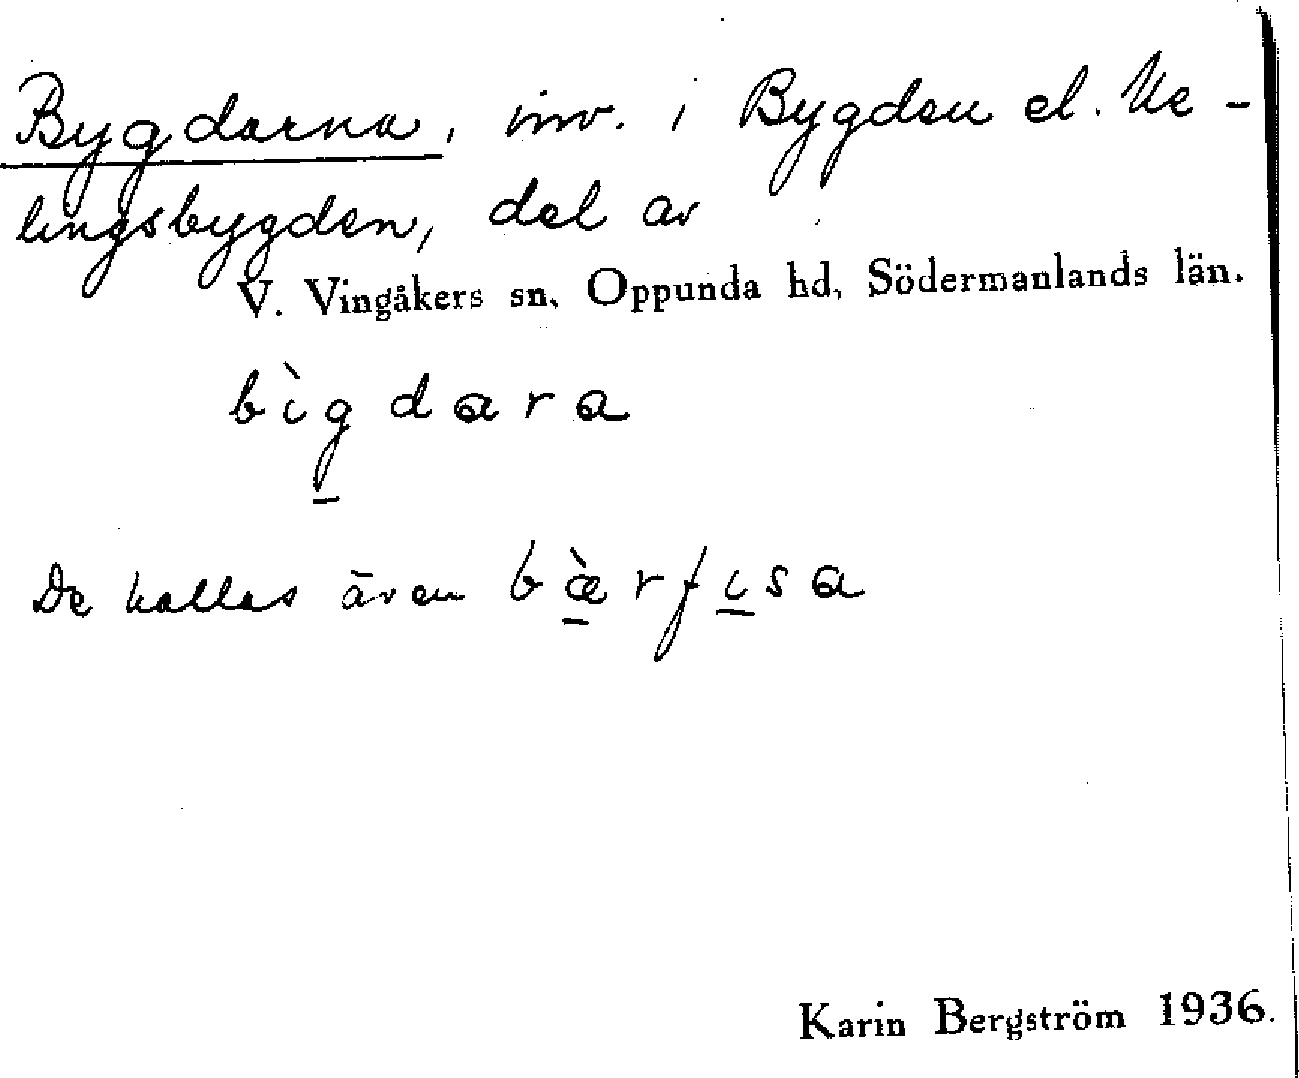 Bygdarna, inv. i Bygden el. Ke-
lingsbygden, del av
V. Vingåkers sn, Oppunda hd, Södermanlands län.
bìgdara
De kallas även bæ̀rfisa
Karin Bergström 1936.